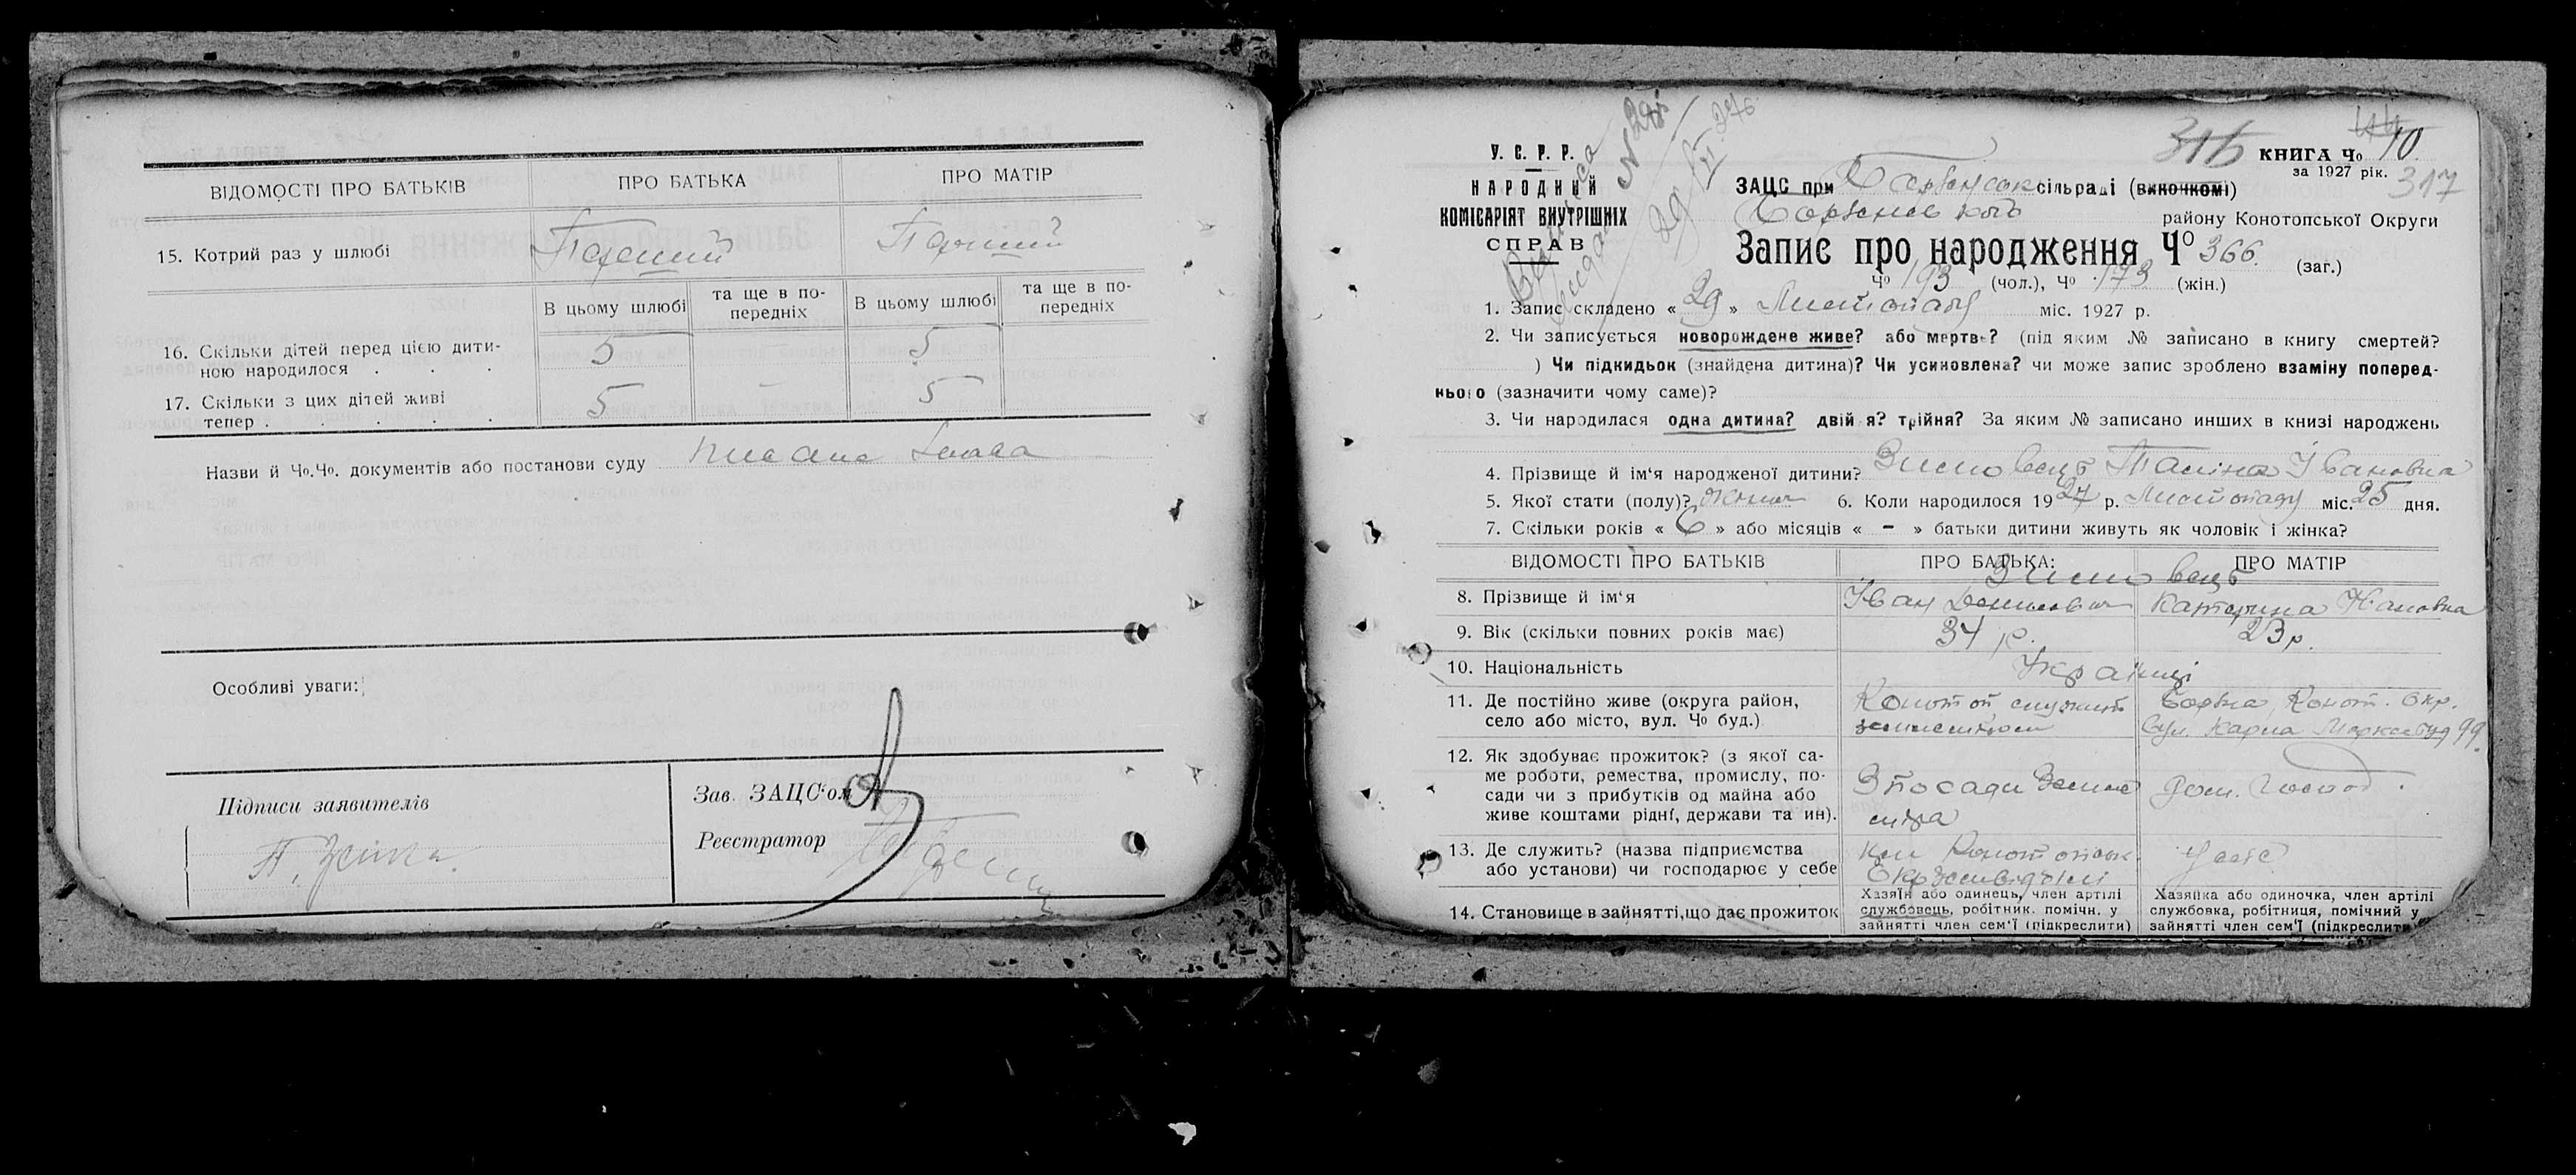 ВІДОМОСТІ ПРО БАТЬКІВ ПРО БАТЬКА ПРО МАТІР
15. Котрий раз у шлюбі Перший Перший
В цьому шлюбі та ще в по-передніх В цьому шлюбі та ще в по-передніх
16. Скільки дітей перед цією дити-
ною народилося . . . 5 — 5
17. Скільки з цих дітей живі
тепер . . . . . 5 — 5
Назви й Чо.Чо. документів або постанови суду
Особливі уваги:
Підписи заявителів
Зав. ЗАЦС'ом
Реєстратор
У. С. Р. Р.
НАРОДНИЙ
КОМІСАРІЯТ ВНУТРІШНІХ
СПРАВ
316 44
КНИГА Чо 10
за 1927 рік. 317
ЗАЦС при Борзенськ сільраді (виконкомі)
Борзенського району Конотопської Округи
Запис про народження Чо 366 (заг.)
Чо 193 (чол.), Чо 173 (жін.)
1. Запис складено « 29 » Листопаду міс. 1927 р.
2. Чи записується новорождене живе? або мертве? (під яким № записано в книгу смертей?
) Чи підкидьок (знайдена дитина)? Чи усиновлена? чи може запис зроблено взаміну поперед-
нього (зазначити чому саме)?
3. Чи народилася одна дитина? двій я? трійня? За яким № записано инших в книзі народжень
4. Прізвище й ім'я народженої дитини? Івановна
5. Якої стати (полу)? жіноч 6. Коли народилося 1927 р. Листопаду міс. 25 дня.
7. Скільки років « 6 » або місяців « - » батьки дитини живуть як чоловік і жінка?
ВІДОМОСТІ ПРО БАТЬКІВ ПРО БАТЬКА: ПРО МАТІР
8. Прізвище й ім'я Іван Катерина
9. Вік (скільки повних років має) 34 р. 23 р.
10. Національність Українці
11. Де постійно живе (округа район,
село або місто, вул. Чо буд.)
Конотоп служить
Борзна, Конот. Окр.
Вул. Карла Маркса буд 99.
12. Як здобуває прожиток? (з якої са-
ме роботи, ремества, промислу, по-
сади чи з прибутків од майна або
живе коштами рідні, держави та ин).
З посади
Дом. господ.
13. Де служить? (назва підприємства
або установи) чи господарює у себе
При Конотопськ.
У себе
14. Становище в зайнятті, що дає прожиток
Хазяїн або одинець, член артілі
службовець, робітник. помічн. у
зайнятті член сем'ї (підкреслити)
Хазяйка або одиночка, член артілі
службовка, робітниця, помічний у
зайнятті член сем'ї (підкреслити)